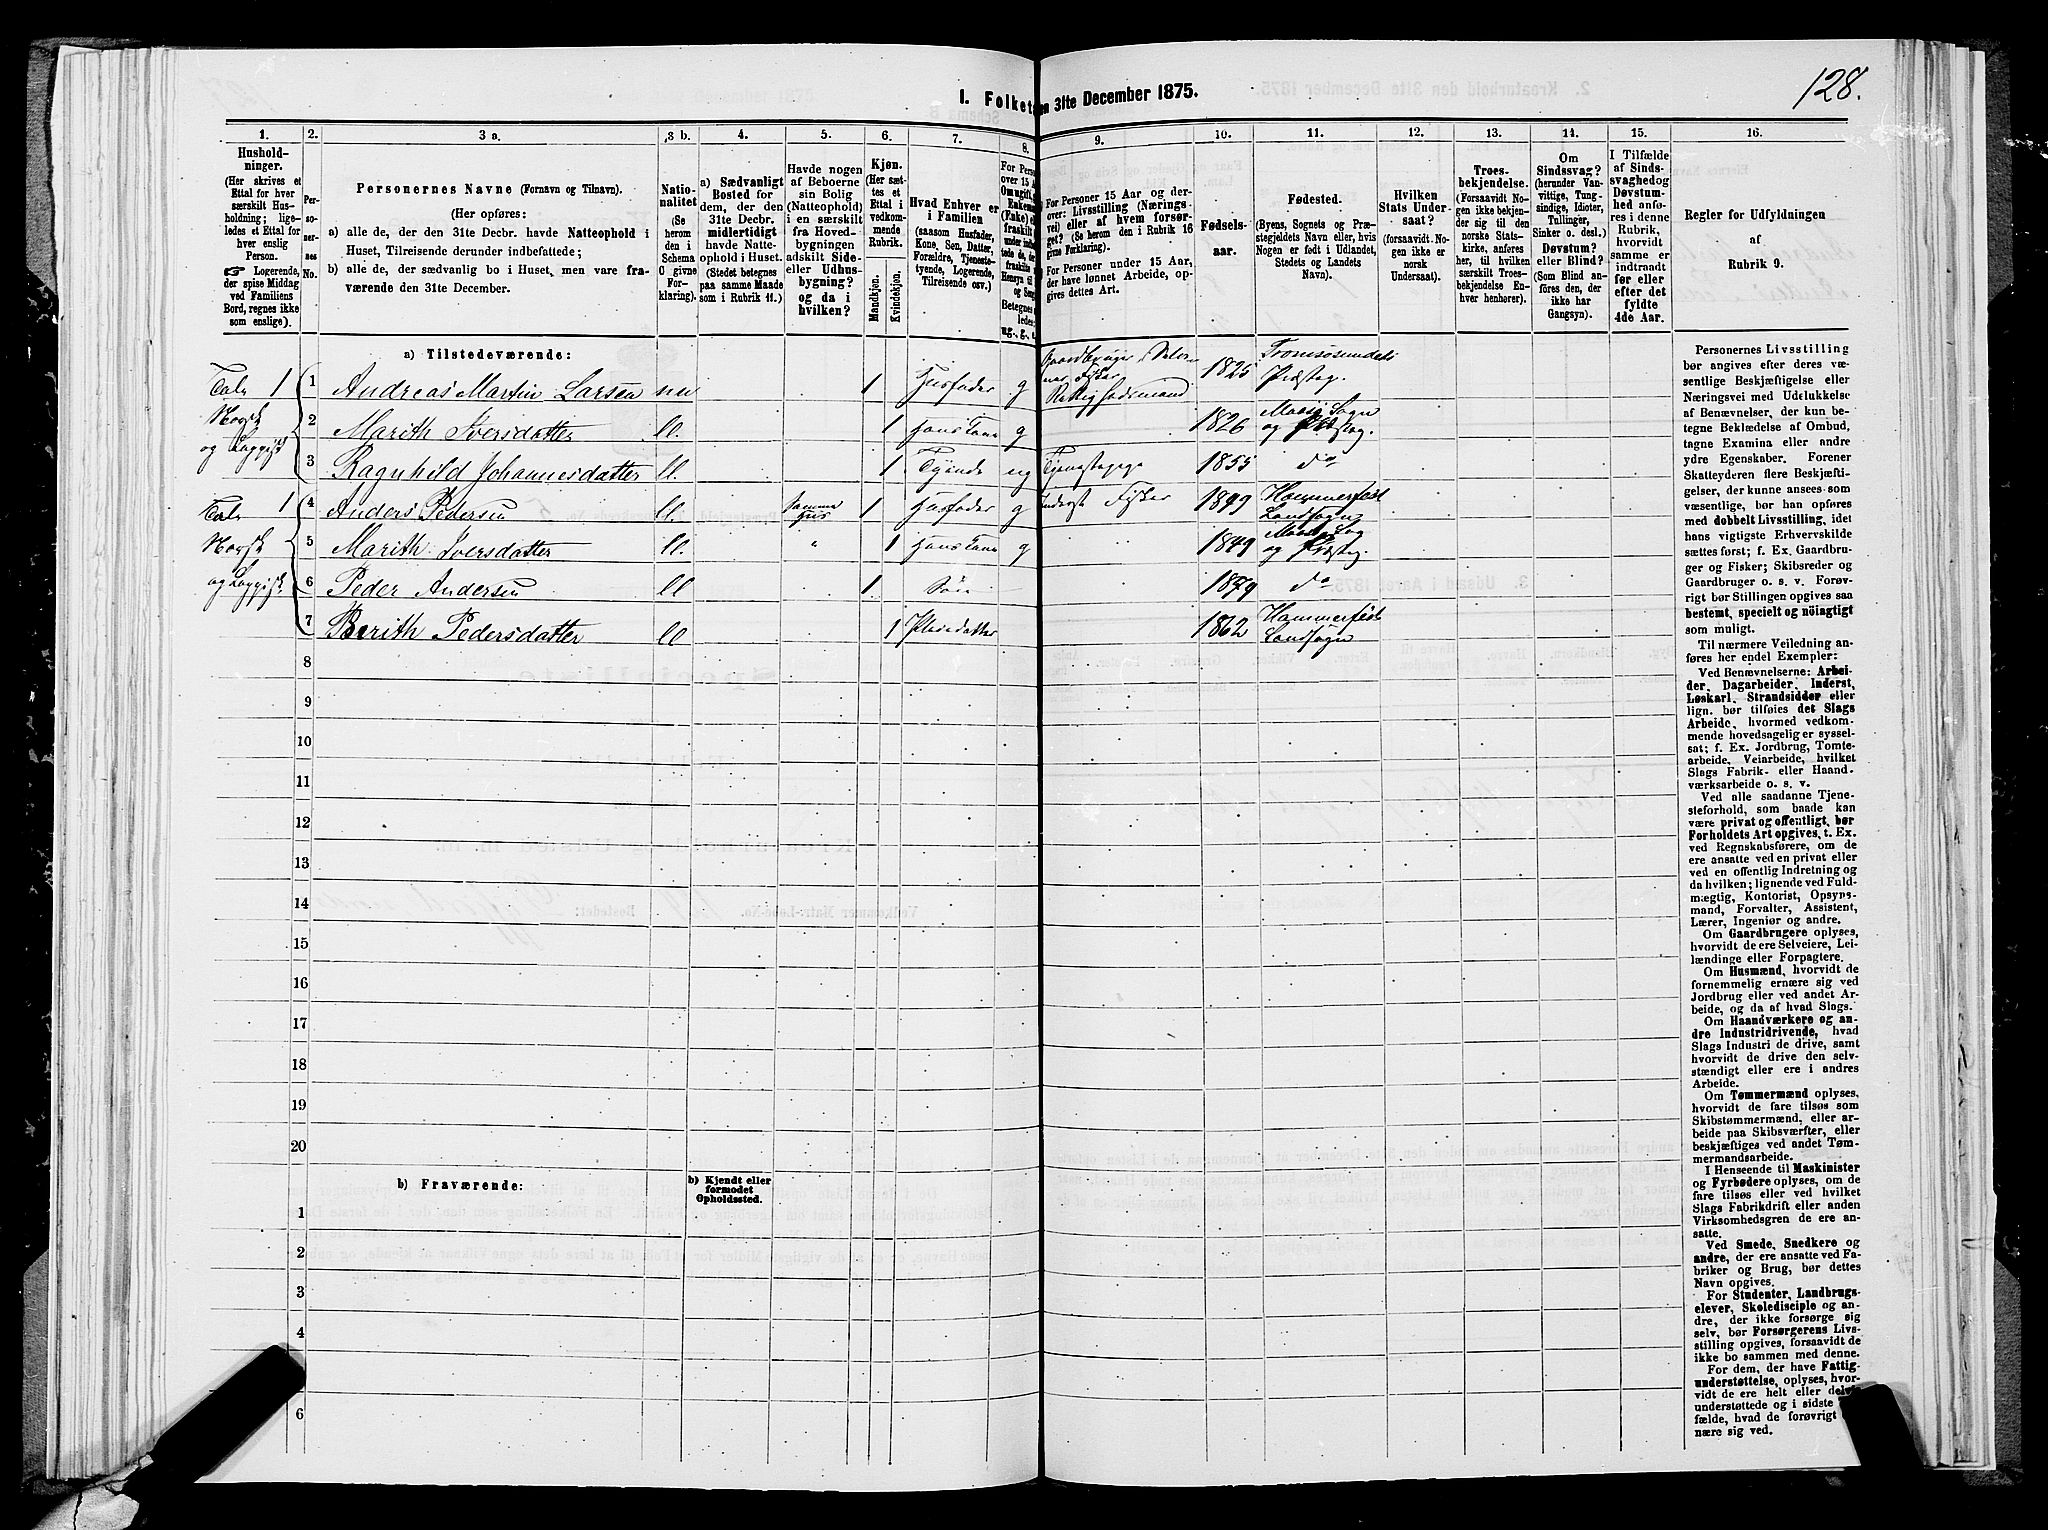 128.
I. Folket
en 31te December 1875.
1. 2. 3 a. 3 b. 4. 5. 6. 7. 8. 9. 10. 11. 12. 13. 14. 15. 16.
Hushold-
ninger.
(Her skrives et
Ettal for hver
særskilt Hus-
holdning; lige-
ledes et Ettal for
hver enslig
Person.
☞ Logerende,
der spise Middag
ved Familiens
Bord, regnes ikke
som enslige).
Per-
so-
ner-
nes
No.
Personernes Navne (Fornavn og Tilnavn).
(Her opføres:
a) alle de, der den 31te Decbr. havde Natteophold i
Huset, Tilreisende derunder indbefattede;
b) alle de, der sædvanlig bo i Huset, men vare fra-
værende den 31te December.)
Natio-
nalitet
(Se
herom
den i
Schema
C givne
For-
klaring).
a) Sædvanligt
Bosted for
dem, der den
31te Decbr.
midlertidigt
havde Natte-
ophold i Huset.
(Stedet betegnes
paa samme Maade
som i Rubrik 11.)
Havde nogen
af Beboerne
sin Bolig
(Natteophold)
i en særskilt
fra Hoved-
bygningen
adskilt Side-
eller Udhus-
bygning?
og da i
hvilken?
Kjøn.
(Her sæt-
tes et
Ettal i
vedkom-
mende
Rubrik.
Mandkjøn.
Kvindekjøn.
Hvad Enhver er
i Familien
(saasom Husfader,
Kone, Søn, Datter,
Forældre, Tjeneste-
tyende, Logerende,
Tilreisende osv.)
For Personer 15 Aar og der-
over: Livsstilling (Nærings-
vei) eller af hvem forsør-
get? (Se herom den i Rubrik 16
givne Forklaring.)
For Personer under 15 Aar,
der have lønnet Arbeide, op-
gives dettes Art.
Fødsels-
aar.
Fødested.
(Byens, Sognets og Præ-
stegjeldets Navn eller, hvis
Nogen er født i Udlandet,
Stedets og Landets
Navn).
Hvilken
Stats Under-
saat?
(forsaavidt No-
gen ikke er
norsk
Undersaat).
Troes-
bekjendelse.
(Forsaavidt No-
gen ikke bekjen-
der sig til den
norske Stats-
kirke, anføres
her, til hvilken
særskilt Troes-
bekjendelse En-
hver henhører).
Om
Sindssvag?
(herunder Van-
vittige, Tung-
sindige, Idioter,
Tullinger,
Sinker o. desl.)
Døvstum?
eller Blind?
(Som Blind an-
føres den, der
ikke har
Gangsyn).
I Tilfælde
af Sinds-
svaghed og
Døvstum-
hed anfø-
res i denne
Rubrik,
hvorvidt
samme er
indtraadt
før eller
efter det
fyldte
4de Aar.
Regler for Udfyldningen
af
Rubrik 9.
a) Tilstedeværende:
Tale 1 1 Andreas Martin Larsen nu 1 Husfader g Gaardbruger Selveier, Fisker 1825 Tromsøsundets Præsteg.
Norsk 2 Marith Iversdatter ll. 1 Hans Kone g 1826 Maasø Sogn og Præsteg.
og Lappisk 3 Ragnhild Johannesdatter ll. 1 Tyende ug Tjenestepige 1855 do
Tale 1 4 Anders Pedersen ll. Samme Hus 1 Husfader g Inderst Fisker 1849 Hammerfest Landsogn
Norsk 5 Marith Iversdatter ll. " 1 Hans Kone g 1849 Maasø Sog og Præsteg.
og Lappisk 6 Peder Andersen ll 1 Søn 1874 do
7 Berith Pedersdatter ll 1 Pleiedatter 1862 Hammerfest Landsogn
8
9
10
11
12
13
14
15
16
17
18
19
20
b) Fraværende:
b) Kjendt eller
formodet
Opholdssted.
1
2
3
4
5
6
Personernes Livsstilling
bør angives efter deres væ-
sentlige Beskjæftigelse eller
Næringsvei med Udelukkelse
af Benævnelser, der kun be-
tegne Beklædelse af Ombud,
tagne Examina eller andre
ydre Egenskaber. Forener
Skatteyderen flere Beskjæfti-
gelser, der kunne ansees som
væsentlige, bør han opføres
med dobbelt Livsstilling, idet
hans vigtigste Erhvervskilde
sættes først; f. Ex. Gaardbru-
ger og Fisker; Skibsreder og
Gaardbruger o. s. v. Forøv-
rigt bør Stillingen opgives saa
bestemt, specielt og nöiagtigt
som muligt.
Til nærmere Veiledning an-
føres her endel Exempler:
Ved Benævnelserne: Arbei-
der, Dagarbeider, Inderst,
Løskarl, Strandsidder eller
lign. bør tilføies det Slags
Arbeide, hvormed vedkom-
mende hovedsagelig er syssel-
sat; f. Ex. Jordbrug, Tomte-
arbeide, Veiarbeide, hvilket
Slags Fabrik- eller Haand-
værksarbeide o. s. v.
Ved alle saadanne Tjene-
steforhold, som baade kan
være privat og offentligt, bør
Forholdets Art opgives, t. Ex.
ved Regnskabsførere, om de
ere ansatte ved en privat eller
ved en offentlig Indretning og
da hvilken; lignende ved Fuld-
mægtig, Kontorist, Opsyns-
mand, Forvalter, Assistent,
Lærer, Ingeniør og andre.
Om Gaardbrugere oplyses,
hvorvidt de ere Selveiere, Lei-
lændinge eller Forpagtere.
Om Husmænd, hvorvidt de
fornemmelig ernære sig ved
Jordbrug eller ved andet Ar-
beide, og da af hvad Slags.
Om Haandværkere og an-
dre Industridrivende, hvad
Slags Industri de drive, samt
hvorvidt de drive den selv-
stændigt eller ere i andres
Arbeide.
Om Tømmermænd oplyses,
hvorvidt de fare tilsøs som
Skibstømmermænd, eller ar-
beide paa Skibsværfter, eller
beskjæftiges ved andet Tøm-
mermandsarbeide.
I Henseende til Maskinister
og Fyrbødere oplyses, om de
fare tilsøs eller ved hvilket
Slags Fabrikdrift eller anden
Virksomhedsgren de ere an-
satte.
Ved Smede, Snedkere og
andre, der ere ansatte ved Fa-
briker og Brug, bør dettes
Navn opgives.
For Studenter, Landbrugs-
elever, Skoledisciple og an-
dre, der ikke forsørge sig
selv, bør Forsørgerens Livs-
stilling opgives, forsaavidt de
ikke bo sammen med denne.
For dem, der have Fattig-
understøttelse, oplyses, hvor-
vidt de ere helt eller delvis
understøttede og i sidste
fælde, hvad de forøvrigt
nære sig ved.